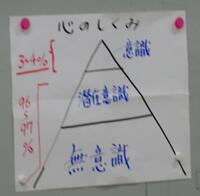 心のしくみ
3~4%
意識
潜在意識
96
〜
97
%
無意識